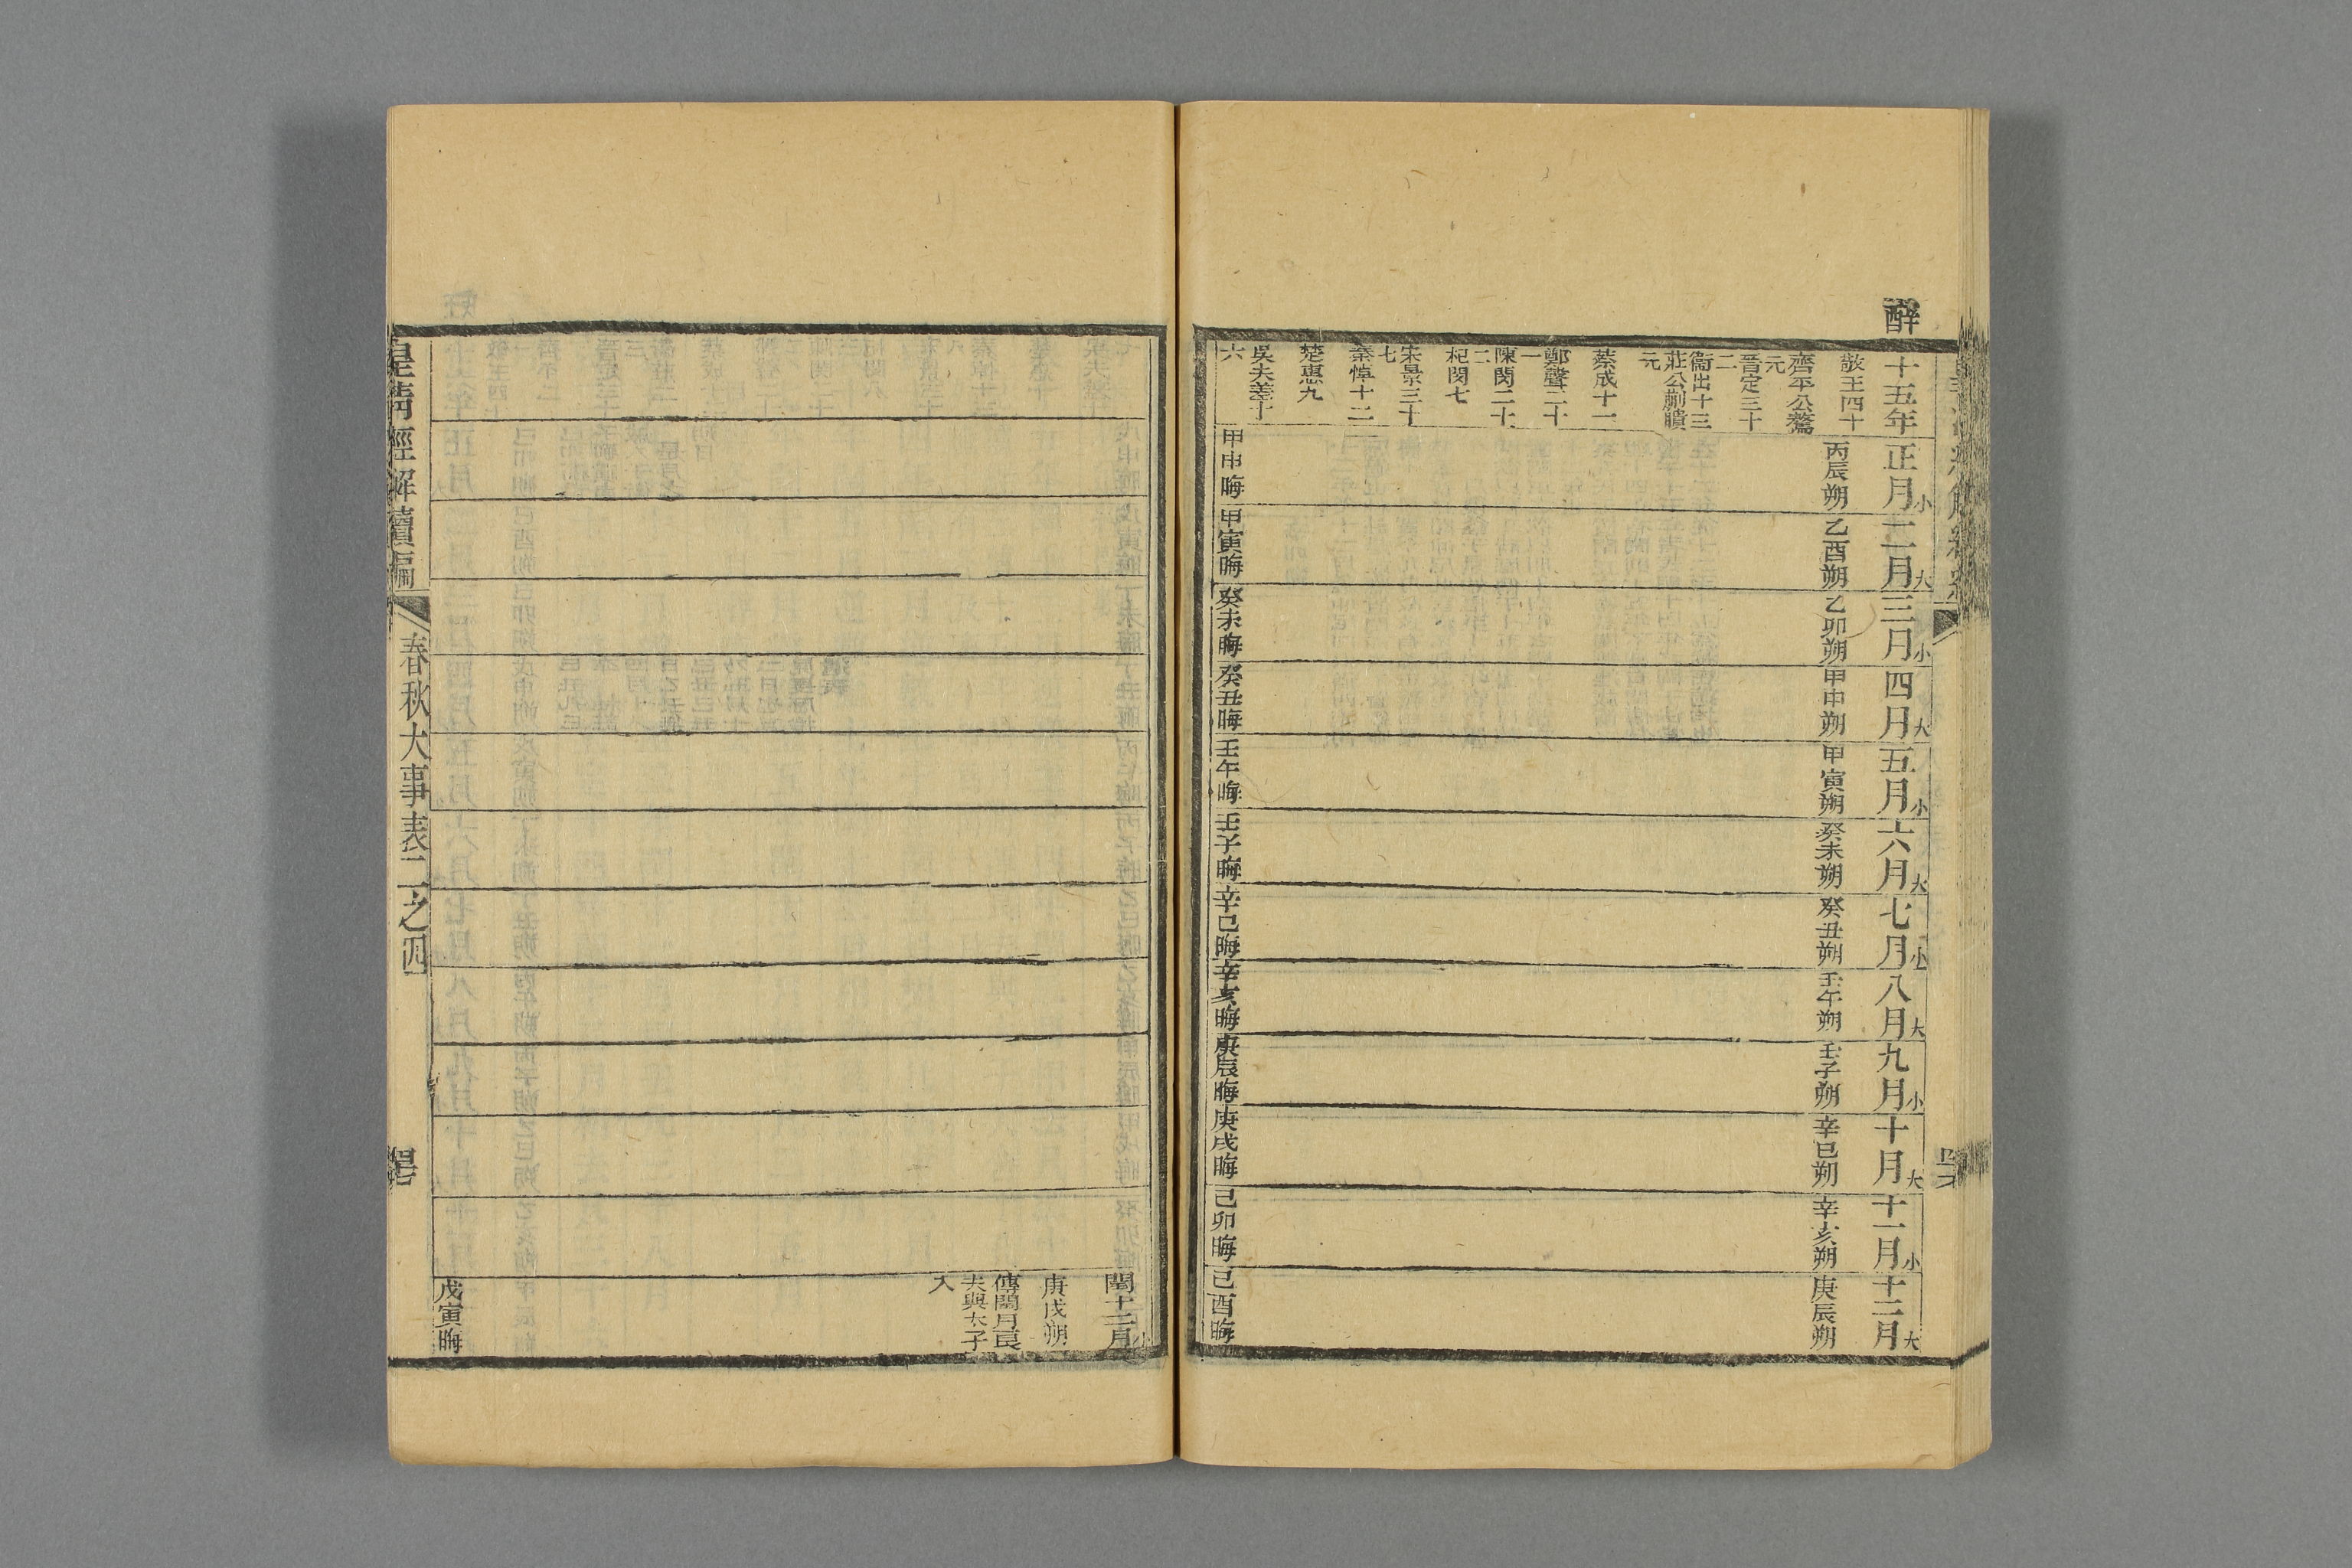 辛酉
十五年 正月小 二月大 三月小 四月大 五月小 六月大 七月小 八月大 九月小 十月大 十一月小 十二月大
敬王四十 丙辰朔 乙酉朔 乙卯朔 甲申朔 甲寅朔 癸未朔 癸丑朔 壬午朔 壬子朔 辛巳朔 辛亥朔 庚辰朔
齊平公驁
元
晉定三十
二
衞出十三
莊公蒯聵
元
蔡成十一
鄭聲二十
一
陳閔二十
二
杞閔七
宋景三十
七
秦悼十二
楚惠九
吳夫差十
六
甲申晦 甲寅晦 癸未晦 癸丑晦 壬午晦 壬子晦 辛巳晦 辛亥晦 庚辰晦 庚戌晦 己卯晦 己酉晦
閏十二月小
庚戌朔
傳閏月良
夫與太子
入
戊寅晦
皇清經解續編 春秋大事表二之四